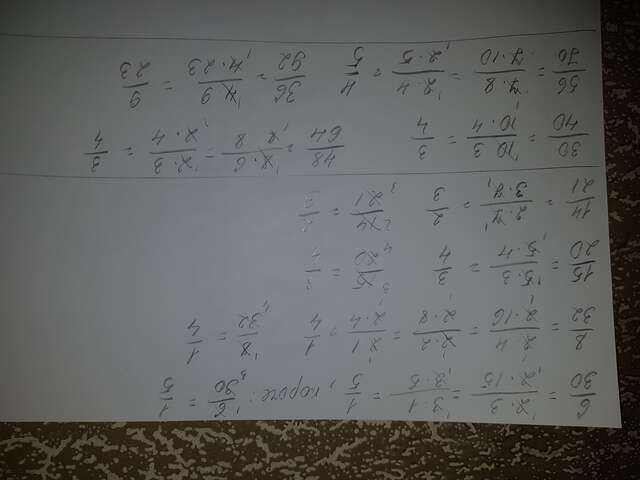 6/30 = 2·3/2·15 = 3·1/3·5 = 1/5, короче: 6/30 = 1/5
8/32 = 2·4/2·16 = 2·2/2·8 = 2·1/2·4 = 1/4 8/32 = 1/4
15/20 = 5·3/5·4 = 3/4 15/20 = 3/4
14/21 = 2·7/3·7 = 2/3 14/21 = 2/3
30/40 = 10·3/10·4 = 3/4 48/64 = 8·6/8·8 = 2·3/2·4 = 3/4
56/70 = 7·8/7·10 = 2·4/2·5 = 4/5 36/92 = 4·9/4·23 = 9/23